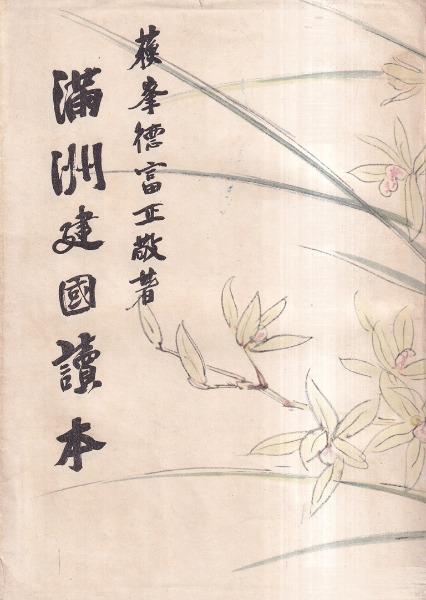 蘇峯德富正敬著
滿洲建國讀本